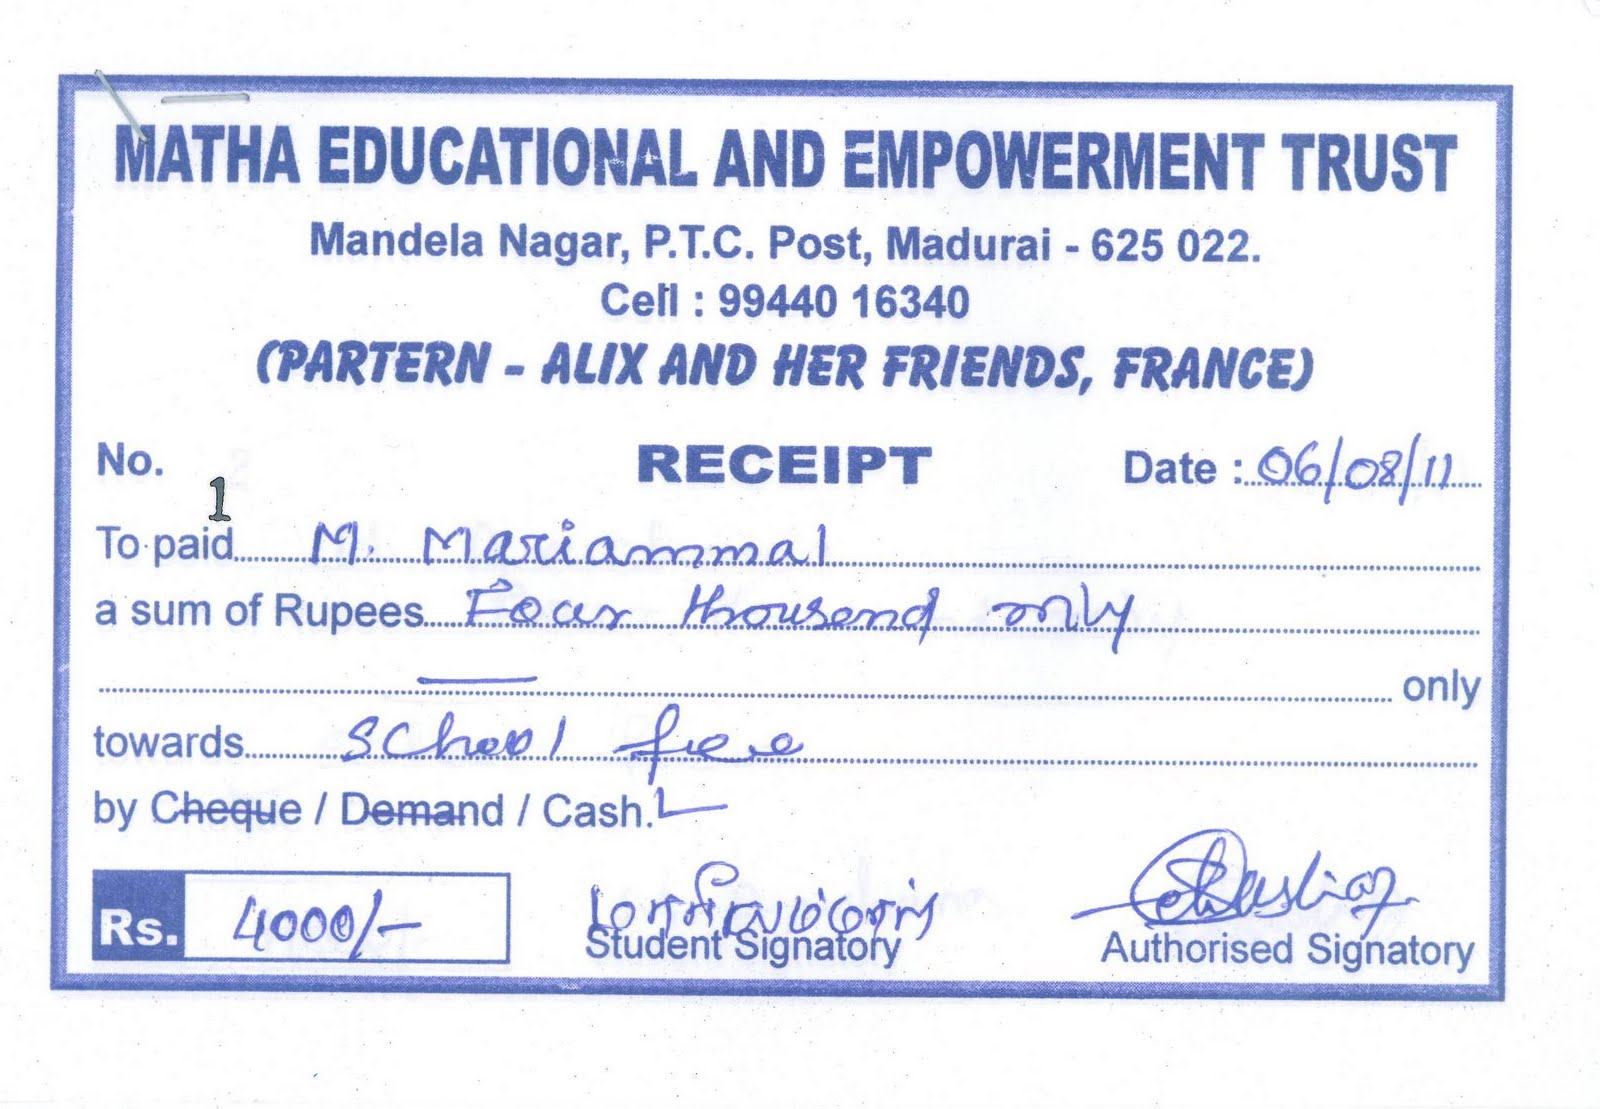 MATHA EDUCATIONAL AND EMPOWERMENT TRUST
Mandela Nagar, P.T.C. Post, Madurai - 625 022.
Cell : 99440 16340
(PARTERN - ALIX AND HER FRIENDS, FRANCE)
No. 1 RECEIPT Date : 06/08/11
To paid M. Mariammal
a sum of Rupees Four thousend only
only
towards school fee
by Cheque / Demand / Cash.
Rs. 4000/- மாரியம்மாள்
Student Signatory Authorised Signatory